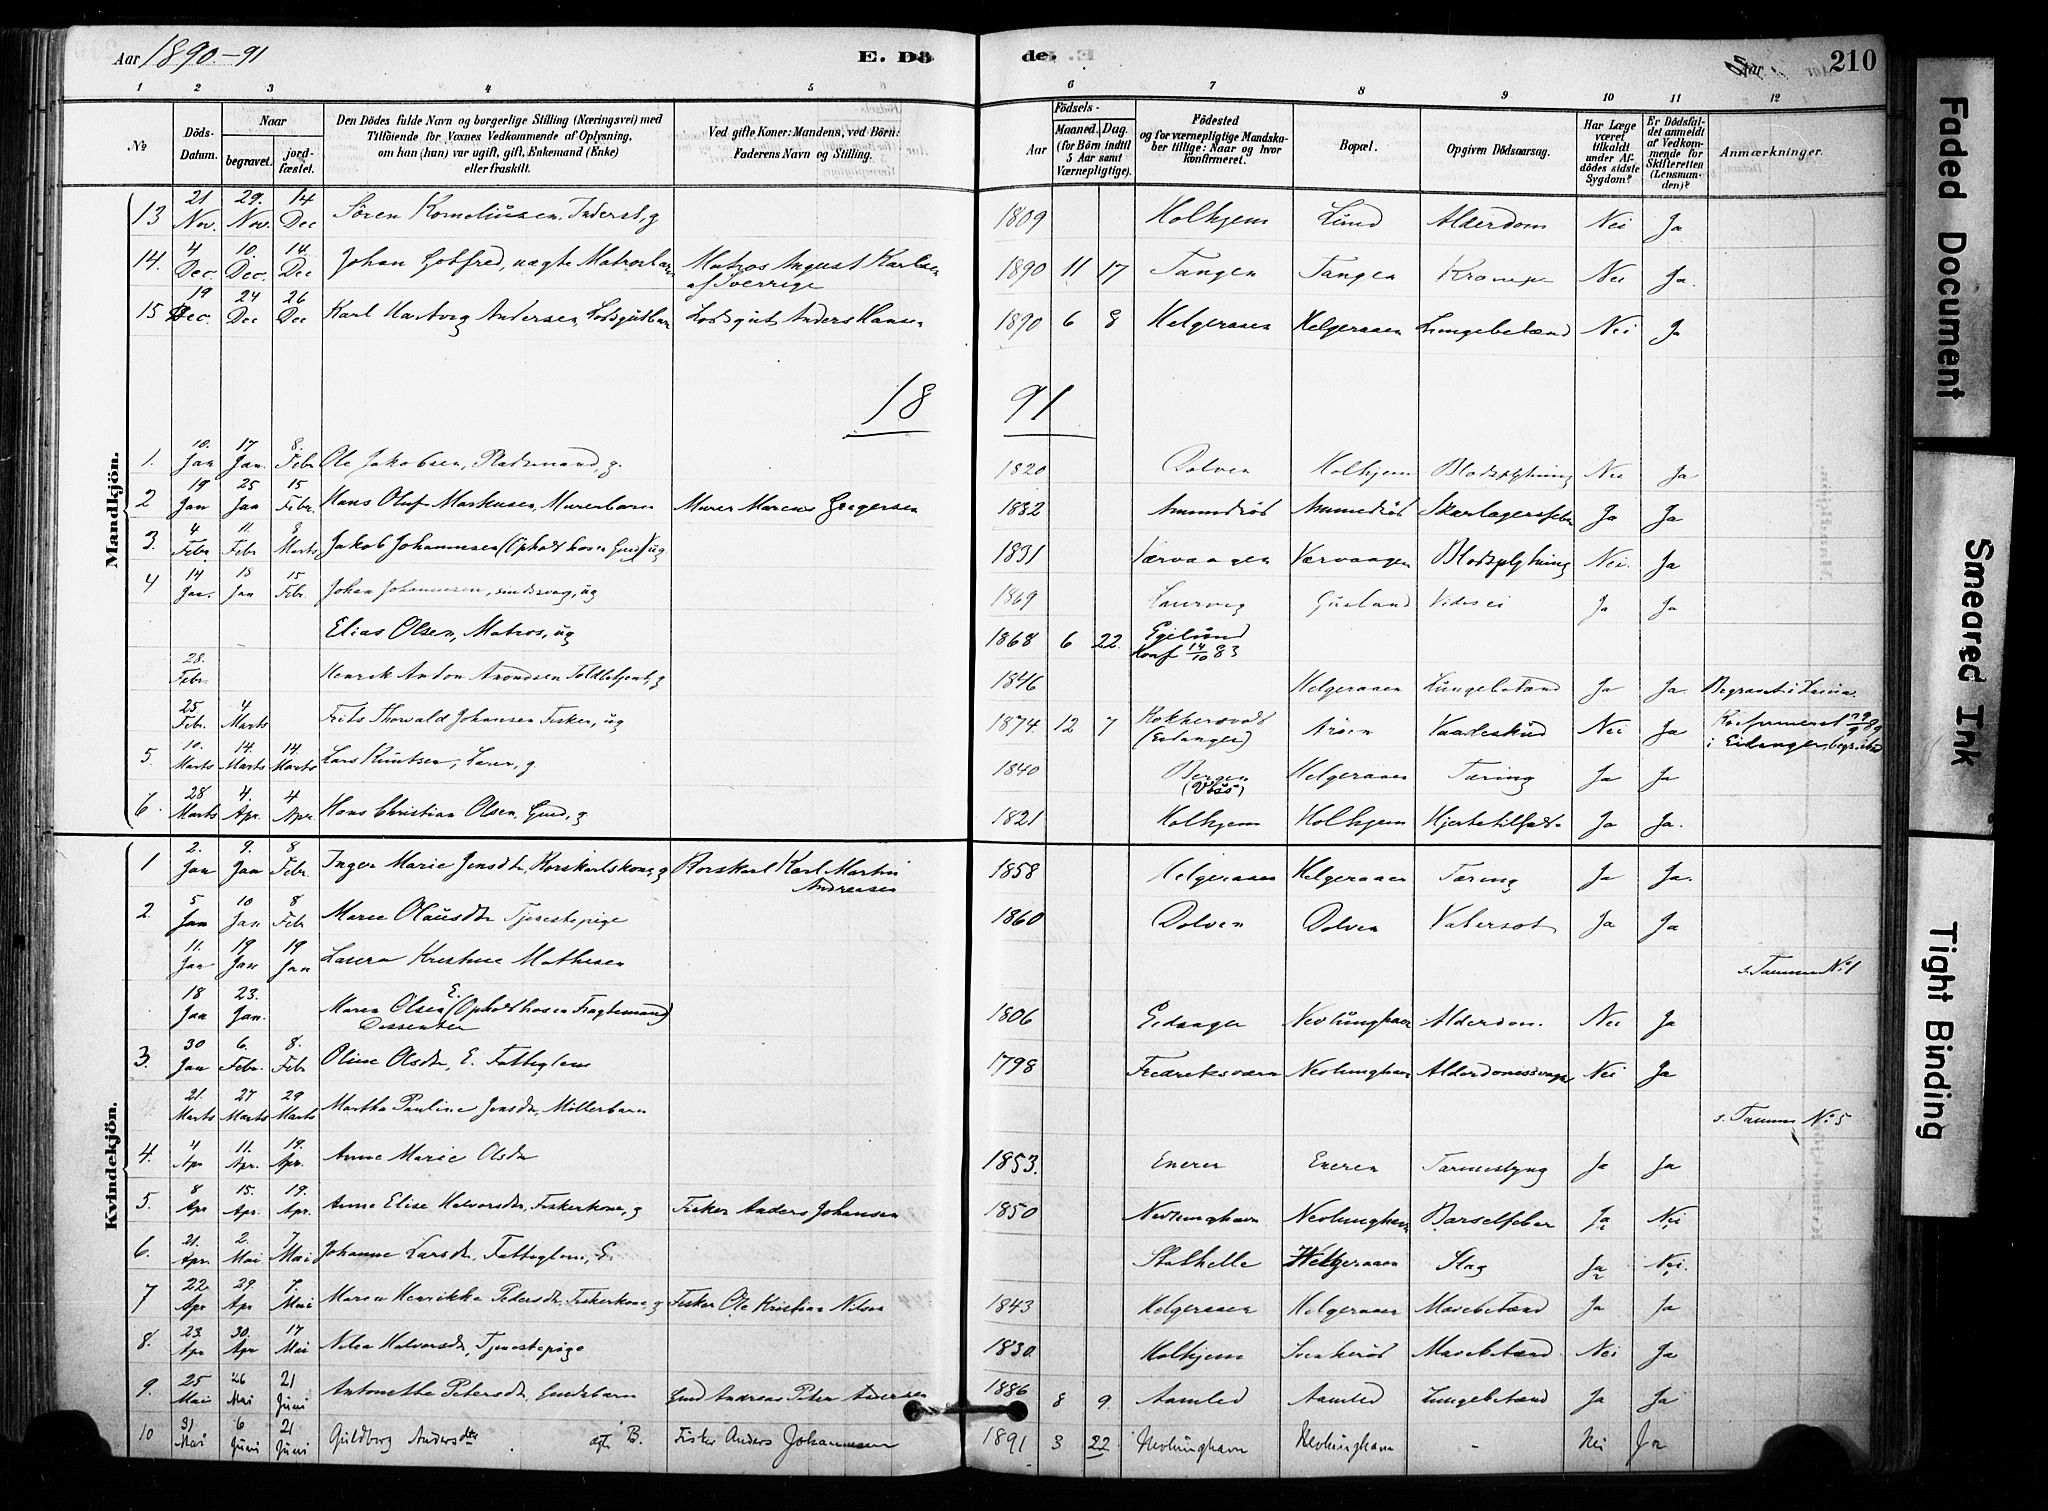 Aar 1890-91 E. Dö de. Aar 210
1 2 3 4 5 6 7 8 9 10 11 12
No Döds-Datum. Naar begravet. jordfæstet. Den Dödes fulde Navn og borgerlige Stilling (Næringsvei) med Tilföiende for Voxnes Vedkommende af Oplysning, om han (hun) var ugift, gift, Enkemand (Enke) eller fraskilt. Ved gifte Koner: Mandens, ved Börn: Faderens Navn og Stilling. Födsels- Aar Maaned. Dag. (for Börn indtil 5 Aar samt Værnepligtige). Födested og for værnepligtige Mandskaber tillige: Naar og hvor konfirmeret. Bopæl. Opgiven Dödsaarsag. Har Læge været tilkaldt under Afdödes sidste Sygdom? Er Dödsfaldet anmeldt af Vedkommende for Skifteretten (Lensmanden)? Anmærkninger.
Mandkjön.
13 21 Nov. 29. Nov. 14 Dec Sören Korneliusen, Inderst, g 1809 Holhjem Lund Alderdom Nei Ja
14. 4 Dec. 10. Dec. 14. Dec Johan Gotfred, uægte Matrosbarn Matros August Karlsen af Sverrige 1890 11 17 Tangen Tangen Krampe Nei Ja.
15 19 Dec. 24 Dec 26 Dec Karl Hartvig Andersen, Lodsgutbarn Lodsgut Anders Hansen 1890 6 8 Helgeraaen Helgeraaen Lungebetænd Nei Ja
18 91
1. 10. Jan 17 Jan. 8. Febr Ole Jakobsen, Pladsmand, g. 1820 Dolven Holhjem Blodspytning Nei Ja
2 19 Jan 25 Jan 15 Febr. Hans Oluf Markusen, Murerbarn Murer Marcus Gregersen 1882 Amundröd Amundröd Skarlagensfeber Ja Ja
3. 4 Febr. 11. Febr 8 Marts Jakob Johannesen (Opholdt hos en Gmd) ug 1831 Værvaagen Værvaagen Blodspytning Nei. Ja
4 14 Jan. 18 Jan 15 Febr. Johan Johannesen, sindssvag, ug 1869 Laurvig Gusland Ja Ja
Elias Olsen, Matros, ug 1868 6 22. Egelund Konf 14/10 83
28. Febr. Henrik Anton Arondsen Toldbetjent, g 1846 Helgeraaen Lungebetænd Ja Ja.
25 Febr. 4 Marts Frits Thorvald Johansen Fisker, ug 1874. 12 7 (Eidanger) Aröen Vaadeskud Nei Ja i Eidanger,
5. 10. Marts 14. Marts 14. Marts Lars Knutsen, g. 1840 Bergen (Voss) Helgeraaen Tæring Ja Ja
6. 28 Marts 4. Apr. 4 Apr. Hans Christian Olsen, Gmd, g 1821 Holhjem Holhjem Hjertetilfælde Ja Ja.
Kvindekjön.
1 2. Jan 9. Jan 8 Febr. Inger Marie Jensdtr, Rorskarlskone, g Rorskarl Karl Martin Andreasen 1858 Helgeraaen Helgeraaen Tæring Ja Ja.
2. 5 Jan 10 Jan 8 Feb Maren Olausdtr Tjenestepige 1860 Dolven Dolven Vatersot Ja Ja
11. Jan 19 Jan 19 Jan Laura Kristine Mathisen s. Tanum No 1
18 Jan 23. Jan. Maren Olsen E. (Opholdt hos en Fragtemand) Dissenter 1806 Eidanger Nevlunghavn Alderdom. Nei Ja
3. 30 Jan 6. Febr. 8. Febr Oline Olsdtr, E. Fattiglem 1798 Fredriksværn Nevlunghavn Alderdomssvaghed Nei Ja
21. Marts 27 Marts 29 Marts Martha Pauline Jensdtr, Möllerbarn s. Tanum No 5
4. 4 Ap 11. Apr. 19. Apr. Anne Marie Olsdtr 1853. Eneren Eneren Tarmeslyng Ja Ja
5. 8 Apr 15. Apr. 19. Apr. Anne Elise Halvorsdtr, Fiskerkone, g Fisker Anders Johansen 1850 Nevlunghavn Nevlunghavn Barselfeber Ja Nei
6. 21. Apr. 2. Mai 7 Mai Johanne Larsdtr, Fattiglem, E. Stathelle Helgeraaen Slag Ja Nei.
7 22 Apr 29. Apr 7. Mai Maren Henrikke Pedersdtr, Fiskerkone, g Fisker Ole Kristian Nilsen 1843 Helgeraaen Helgeraaen Mavebetænd Ja Ja
8. 23. Apr 30. Apr 17 Mai Nilea Halvorsdtr, Tjenestepige 1830. Holhjem Svenkeröd Mavebetænd Nei Ja
9. 25 Mai 26 Mai 21 Juni Antonethe Petersdtr, Gmdsbarn Gmd Andreas Peter Andersen 1886 8 9. Aamled Aamled Lungebetænd Ja Ja
10 31 Mai 6 Juni 21 Juni Guldborg Andersdtr. ægte B. Fisker Anders Johannsen 1891 3 22 Nevlunghavn Nevlunghavn - Nei Ja
Faded Document
Smeared Ink
Tight Binding